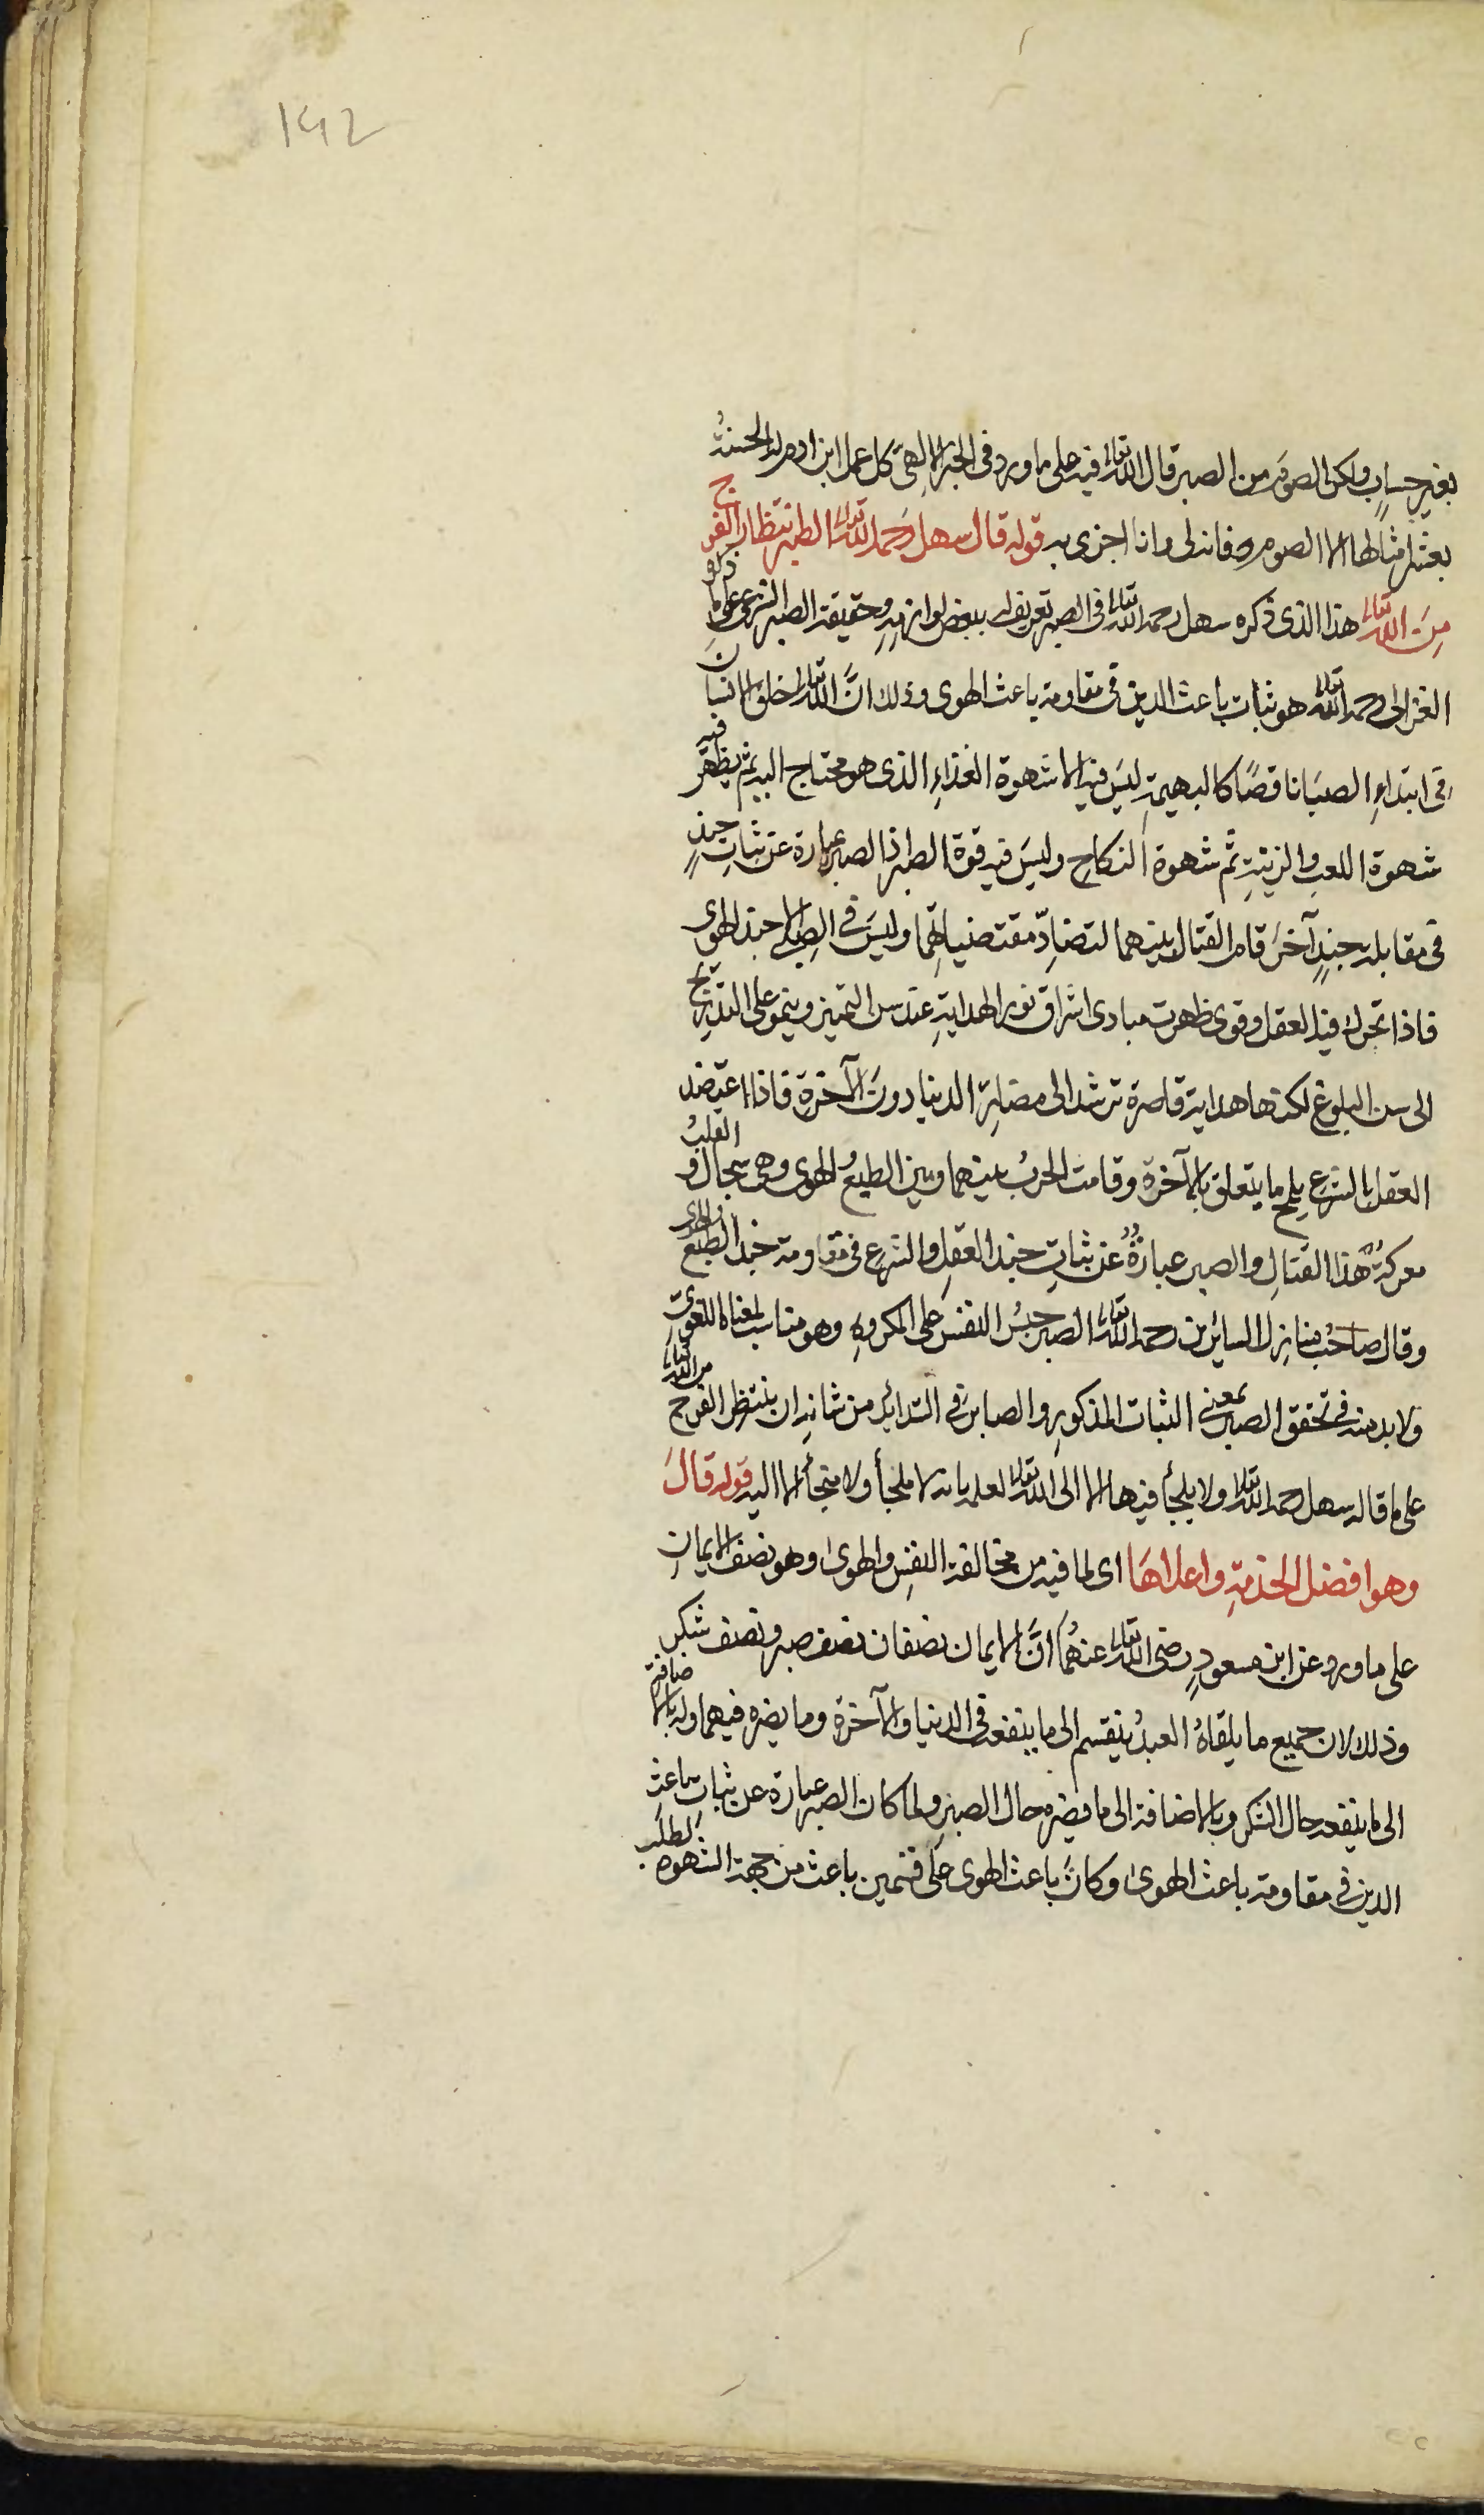 192
بغير حساب ولكون الصوم من الصبر قال الله تعالى فيه على ما ورد في الخبر الالهي كل عمل ابن ادم له الحسنة
بعشر امثالها الا الصوم فانه لى وانا اجزى به قوله قال سهل رحمه الله تعالى الصبر انتظار الفرج
من الله تعالى هذا الذى ذكره سهل رحمه الله تعالى في الصبر تعريف له ببعض لوازمه وحقيقة الصبر الشرعى على ما ذكره
الغزالى رحمه الله تعالى هو ثبات باعث الدين في مقاومة باعث الهوى وذلك انّ الله تعالى خلق الانسان
في ابتداءِ الصبَا ناقصًا كالبهيمةِ ليسَ فيه الا شهوة الغذاءِ الذى هو محتاج اليه ثم يظهر فيه
شهوة اللعب والزينةِ ثم شهوة النكاح وليسَ فيه قوة الصبر اذ الصبر عبارة عن ثباتِ جندٍ
في مقابلة جندٍ آخرَ قام القتال بينهما لتضادّ مقتضياتهما وليسَ في الصبى الا جند الهوى
فاذا تحرك فيه العقل وقوى ظهرت مبادى اشراق نور الهدايةِ عند سن التمييز وينمو على التدريج
الى سن البلوغ لكنها هداية قاصرة ترشد الى مضارّ الدنيا دونَ الآخرة فاذا اعتضد
العقل بالشرع يلمح ما يتعلق بالآخرة وقامت الحربُ بينهما وبين الطبع والهوى وهى سجال و القلبُ
معركةُ هذا القتالِ والصبر عبارةُ عن ثباتِ جند العقلِ والشرع في مقاومة جند الطبع والهوى
وقال صاحبُ منازل السائرين رحمه الله تعالى الصبر حبسُ النفس على المكروهِ وهو مناسب لمعناه اللغوىّ
ولا بد منه في تحقق الصبر بمعنى الثبات المذكورِ والصابر في الشدائد من شانه ان ينتظر الفرج من الله تعالى
على ما قاله سهل رحمه الله تعالى ولا يلجأ فيها الا الى الله تعالى لعلمه بانه لا ملجأ ولا منجأ الا اليه قوله قالَ
وهو افضل الخدمةِ واعلاهَا اى لما فيه من مخالفة النفسِ والهوى وهو نصف الايمانِ
على ما ورد عن ابن مسعودٍ رضى الله تعالى عنهُمَا انّ الايمان نصفان نصف صبر ونصف شكر
وذلك لان جميع ما يلقاهُ العبدُ ينقسم الى ما ينفعه في الدنيا والآخرة وما يضره فيهما وله بالاضافة
الى ما ينفعه حال الشكر وبالاضافة الى ما يضره حال الصبر ولما كان الصبر عبارة عن ثبات باعثِ
الدين في مقاومة باعث الهوى وكانَ باعث الهوى على قسمين باعث من جهة الشهوة لطلب